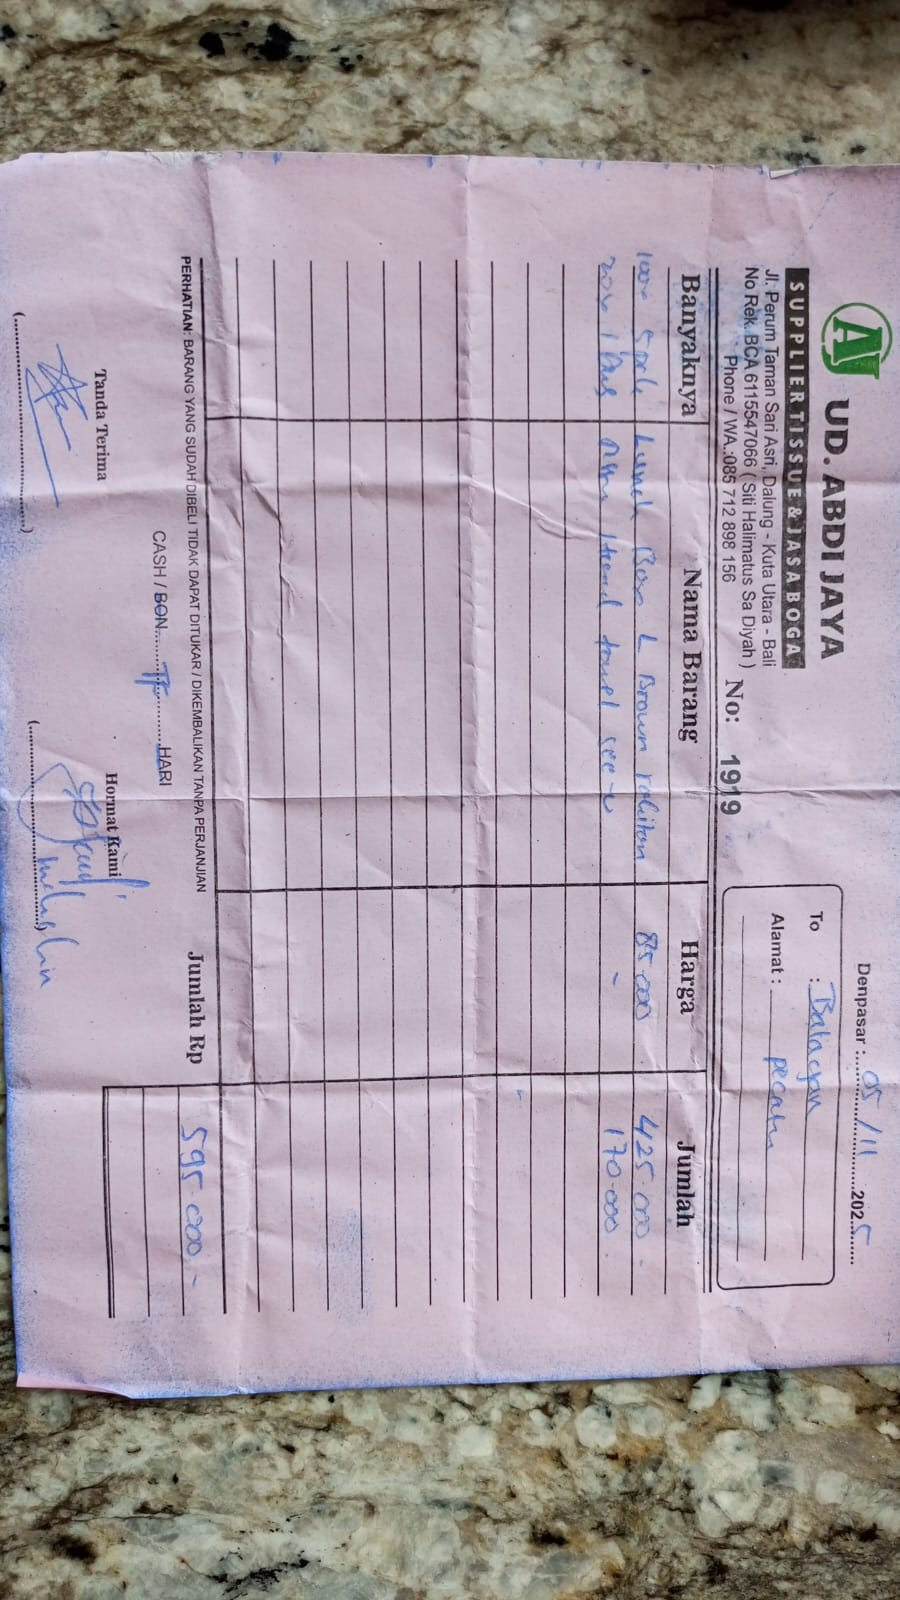 AJ UD. ABDI JAYA
SUPPLIER TISSUE & JASA BOGA
Jl. Perum Taman Sari Asri, Dalung - Kuta Utara - Bali
No Rek.BCA 6115547066 ( Siti Halimatus Sa Diyah )
Phone / WA.:085 712 898 156
No: 1919
Denpasar : 05/11 2025
To : Balaeyon
Alamat : pecatu
Banyaknya Nama Barang Harga Jumlah
5 Lunch Box L Brown 85.000 425.000
20 x 1 Dus Hand towel see u - 170.000
Jumlah Rp 595.000,-
PERHATIAN: BARANG YANG SUDAH DIBELI TIDAK DAPAT DITUKAR / DIKEMBALIKAN TANPA PERJANJIAN
CASH / BON TF HARI
Tanda Terima Hormat Kami